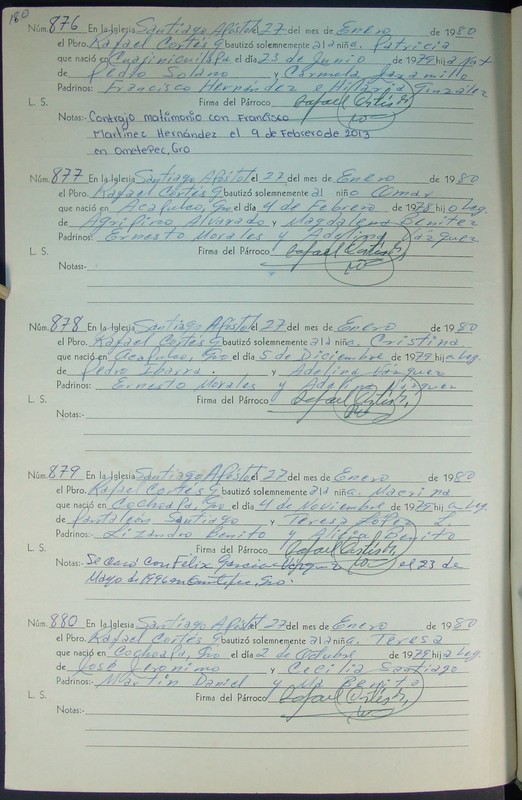 180
Núm. 876 En la Iglesia Santiago Apóstol el 27 del mes de Enero de 1980
el Pbro. Rafael Cortés G bautizó solemnemente a la niña. Patricia
que nació en Cuajinicuilapa el día 23 de Junio de 1979 hija Nat
de Pedro Solano y Carmela Jaramillo
Padrinos: Francisco Hernández e Hilaria González
L. S. Firma del Párroco Rafael Cortés G,
Notas:- Contrajo matrimonio con Francisco
Martínez Hernández el 9 de Febrero de 2013
en Ometepec, Gro
Núm. 877 En la Iglesia Santiago Apóstol el 27 del mes de Enero de 1980
el Pbro. Rafael Cortés G bautizó solemnemente al niño Omar
que nació en Acapulco, Gro el día 4 de Febrero de 1978 hijo Leg.
de Agripino Alvarado y Magdalena Benitez
Padrinos: Ernesto Morales y Adelina Vázquez
L. S. Firma del Párroco Rafael Cortés G,
Notas:-
Núm. 878 En la Iglesia Santiago Apóstol el 27 del mes de Enero de 1980
el Pbro. Rafael Cortés G bautizó solemnemente a la niña. Cristina
que nació en Acapulco, Gro el día 5 de Diciembre de 1979 hija Leg.
de Pedro Ibarra. y Adelina Vázquez
Padrinos: Ernesto Morales y Adelina
L. S. Firma del Párroco Rafael Cortés G,
Notas:-
Núm. 879 En la Iglesia Santiago Apóstol el 27 del mes de Enero de 1980
el Pbro. Rafael Cortés G bautizó solemnemente a la niña. Macrina
que nació en Cochoapa, Gro el día 4 de Noviembre de 1979 hija Leg.
de Pantaleón Santiago y Teresa López
Padrinos:- Lizandro Benito y Alicia Benito
L. S. Firma del Párroco Rafael Cortés G,
Notas:- Se casó con Félix García Vázquez el 23 de
Mayo de 1996 en Ometepec, Gro.
Núm. 880 En la Iglesia Santiago Apóstol el 27 del mes de Enero de 1980
el Pbro. Rafael Cortés G bautizó solemnemente a la niña. Teresa
que nació en Cochoapa, Gro el día 2 de Octubre de 1979 hija Leg.
de José Jeronimo y Cecilia Santiago
Padrinos:- Martín Daniel y Benita
L. S. Firma del Párroco Rafael Cortés G,
Notas:-